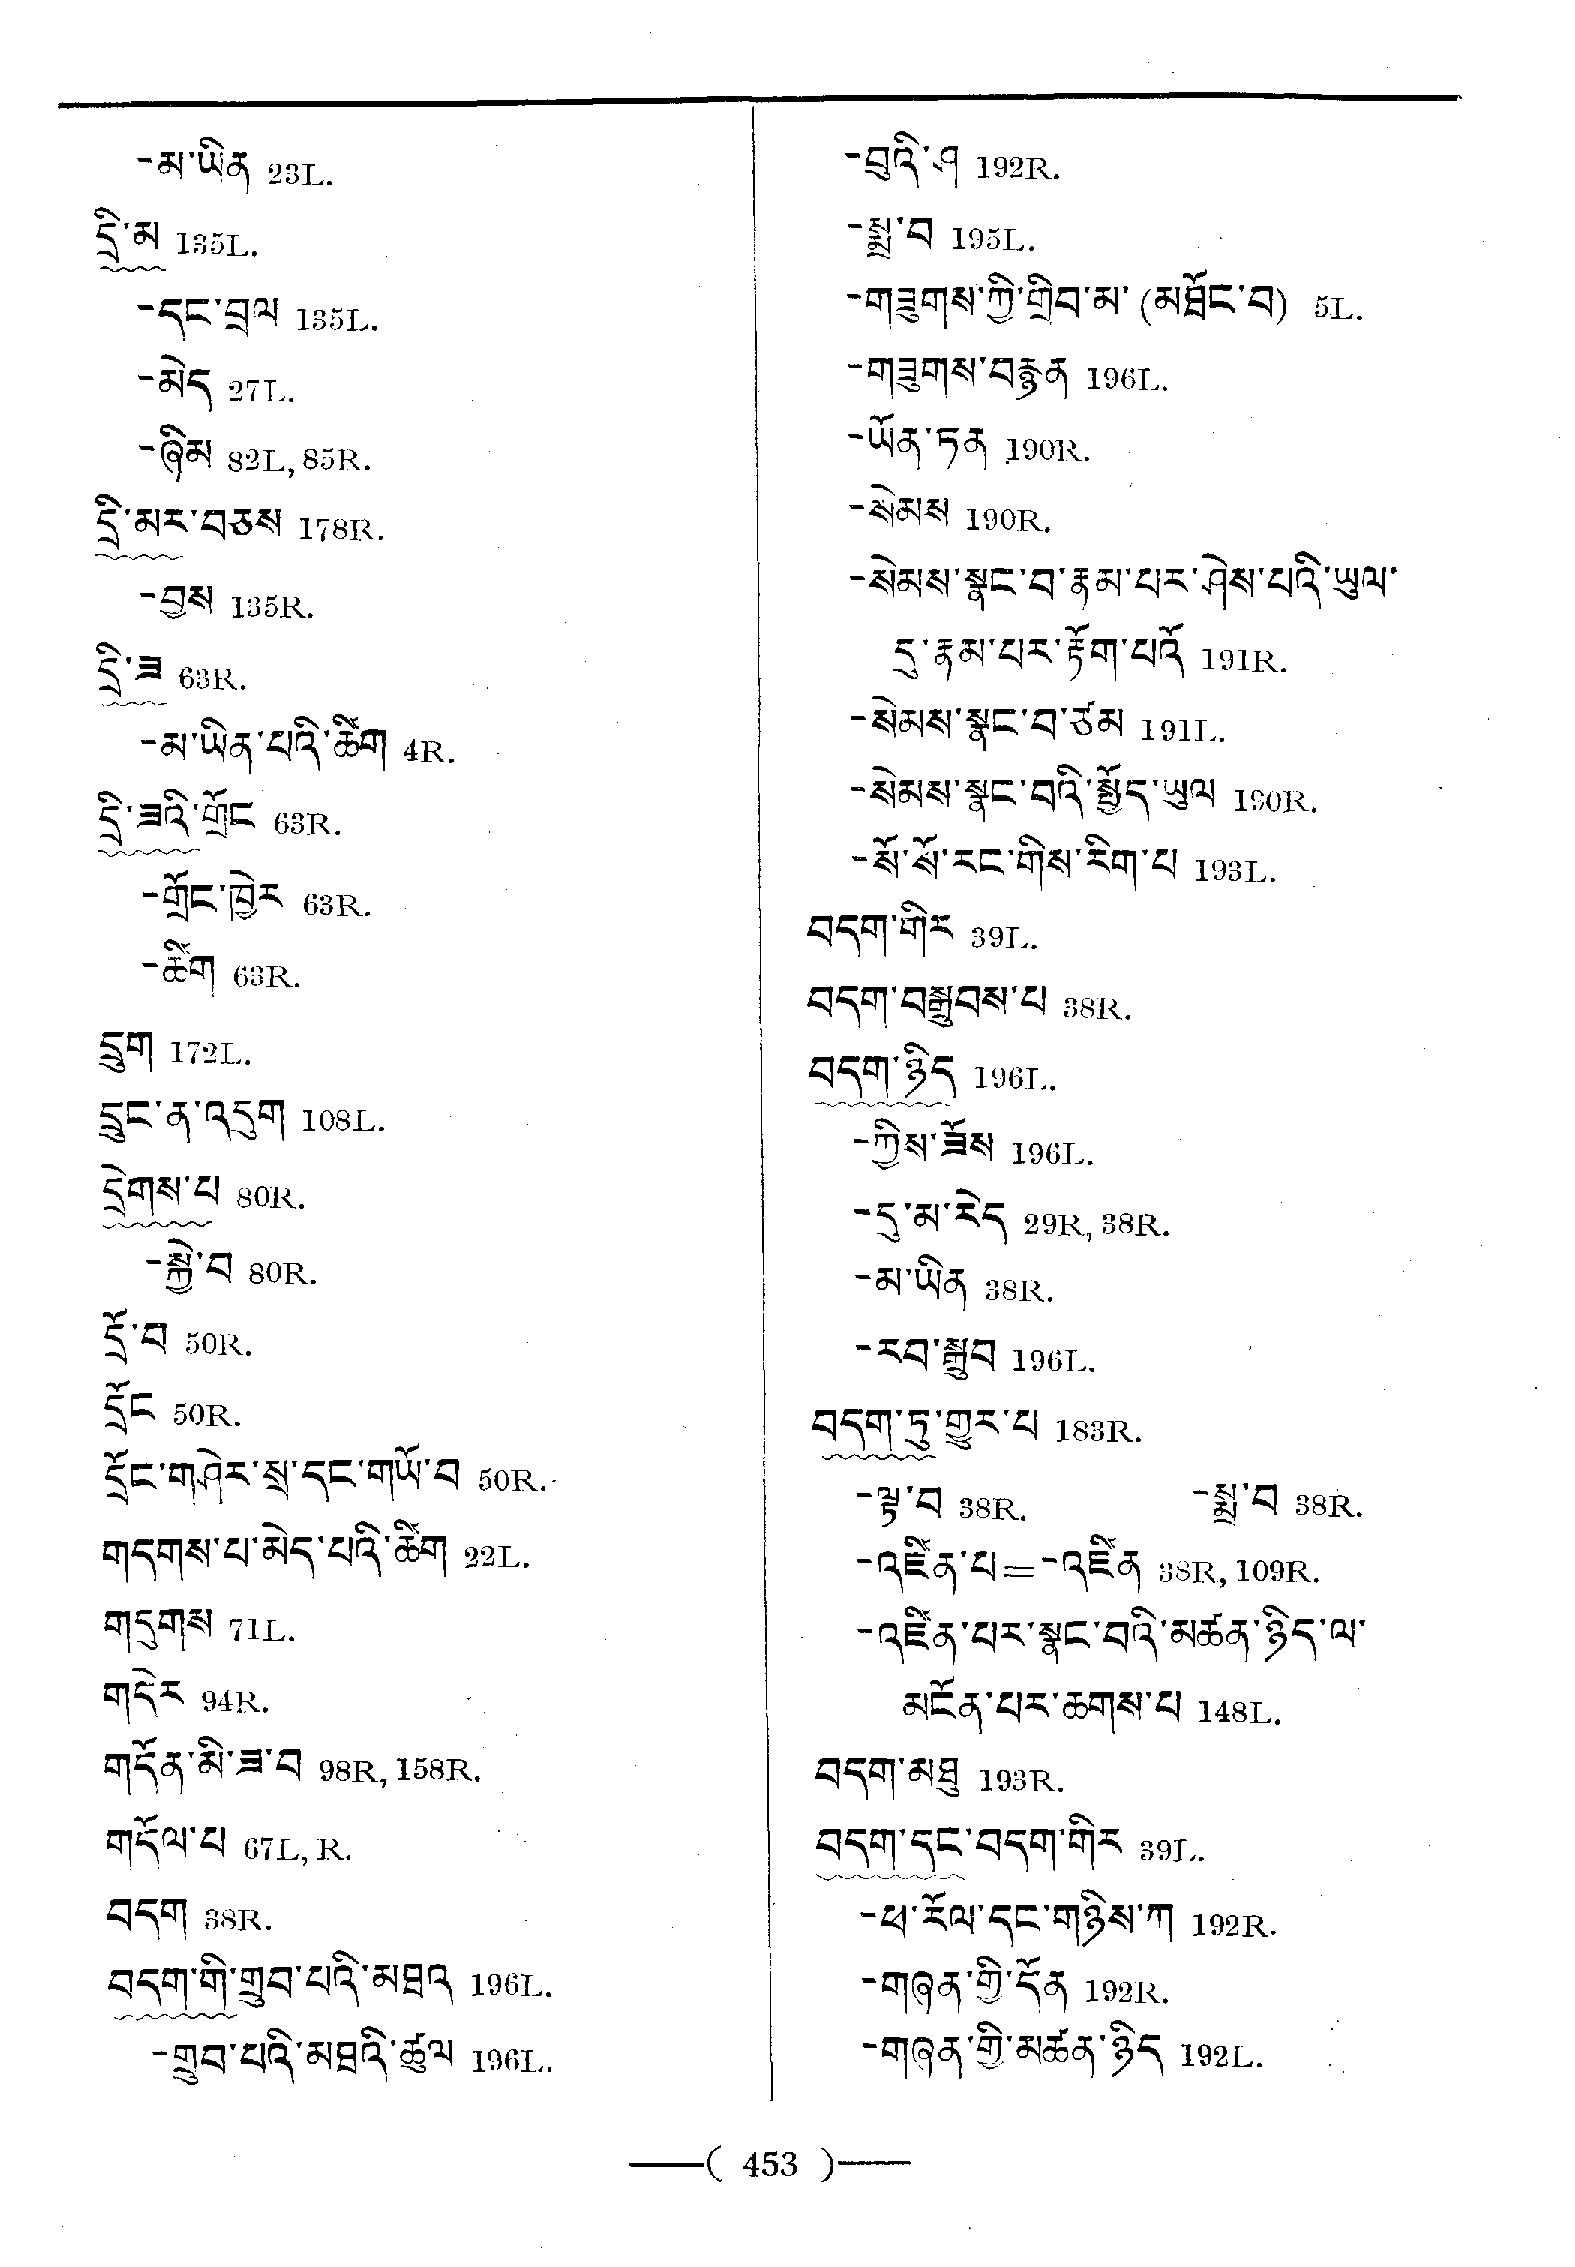 -མ་ཡིན 23L.
དྲི་མ 135L.
-དང་བྲལ 135L.
-མེད 27L.
-ཞིམ 82L, 85R.
དྲི་མར་བཅས 178R.
-བྱས 135R.
དྲི་ཟ 63R.
-མ་ཡིན་པའི་ཚིག 4R.
དྲི་ཟའི་གྲོང 63R.
-གྲོང་ཁྱེར 63R.
-ཚིག 63R.
དྲུག 172L.
དྲུང་ན་འདུག 108L.
དྲེགས་པ 80R.
-སྐྱེ་བ 80R.
དྲོ་བ 50R.
དྲོང 50R.
དྲོང་གཤེར་སྲ་དང་གཡོ་བ 50R.
གདགས་པ་མེད་པའི་ཚིག 22L.
གདུགས 71L.
གདེར 94R.
གདོན་མི་ཟ་བ 98R, 158R.
གདོལ་པ 67L, R.
བདག 38R.
བདག་གི་གྲུབ་པའི་མཐའ 196L.
-གྲུབ་པའི་མཐའི་ཚུལ 196L.
-བྲུའི་ཤ 192R.
-སྨྲ་བ 195L.
-གཟུགས་ཀྱི་གྲིབ་མ་ (མཐོང་བ) 5L.
-གཟུགས་བརྙན 196L.
-ཡོན་ཏན 190R.
-སེམས 190R.
-སེམས་སྣང་བ་རྣམ་པར་ཤེས་པའི་ཡུལ་
དུ་རྣམ་པར་རྟོག་པའོ 191R.
-སེམས་སྣང་བ་ཙམ 191L.
-སེམས་སྣང་བའི་སྤྱོད་ཡུལ 190R.
-སོ་སོ་རང་གིས་རིག་པ 193L.
བདག་གིར 39L.
བདག་བསྒྲུབས་པ 38R.
བདག་ཉིད 196L.
-ཀྱིས་ཟོས 196L.
-དུ་མ་རེད 29R, 38R.
-མ་ཡིན 38R.
-རབ་སྒྲུབ 196L.
བདག་ཏུ་གྱུར་པ 183R.
-ལྟ་བ 38R. -སྨྲ་བ 38R.
-འཛིན་པ=-འཛིན 38R, 109R.
-འཛིན་པར་སྣང་བའི་མཚན་ཉིད་ལ་
མངོན་པར་ཆགས་པ 148L.
བདག་མཐུ 193R.
བདག་དང་བདག་གིར 39L.
-ཕ་རོལ་དང་གཉིས་ཀ 192R.
-གཞན་གྱི་དོན 192R.
-གཞན་གྱི་མཚན་ཉིད 192L.
—( 453 )—